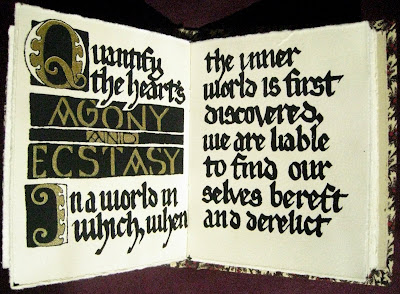 Quantify
the heart's
AGONY
AND
ECSTASY
In a world in
which, when
the inner
world is first
discovered,
we are liable
to find our
selves bereft
and derelict